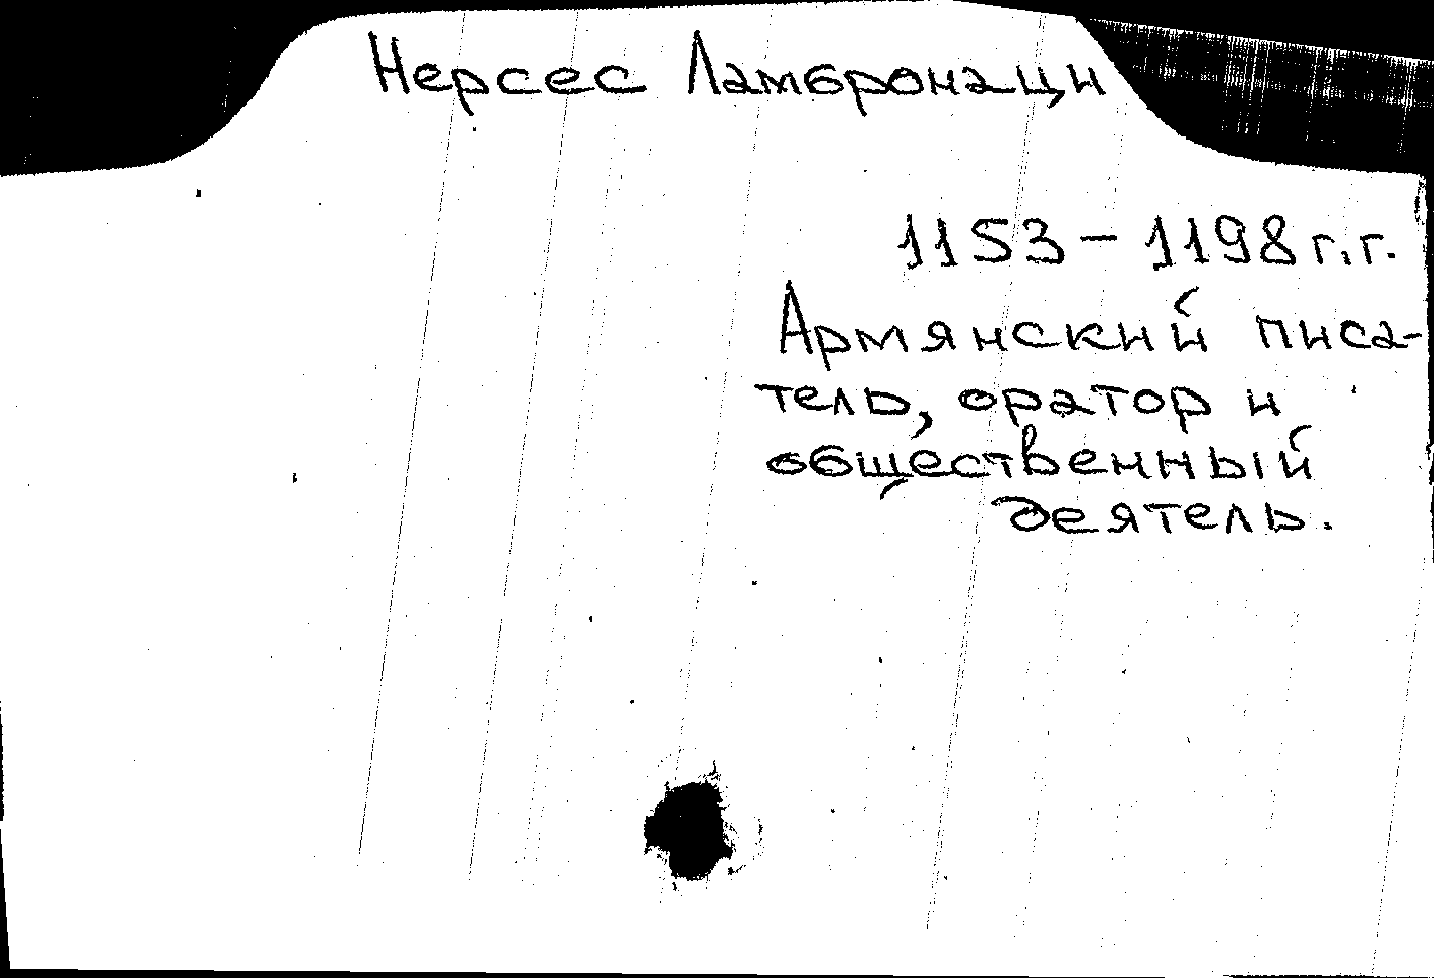 Нерсес Ламбронаци
1153-1198 г.г.
Армянский писа-
тель, оратор и
общественный
деятель.